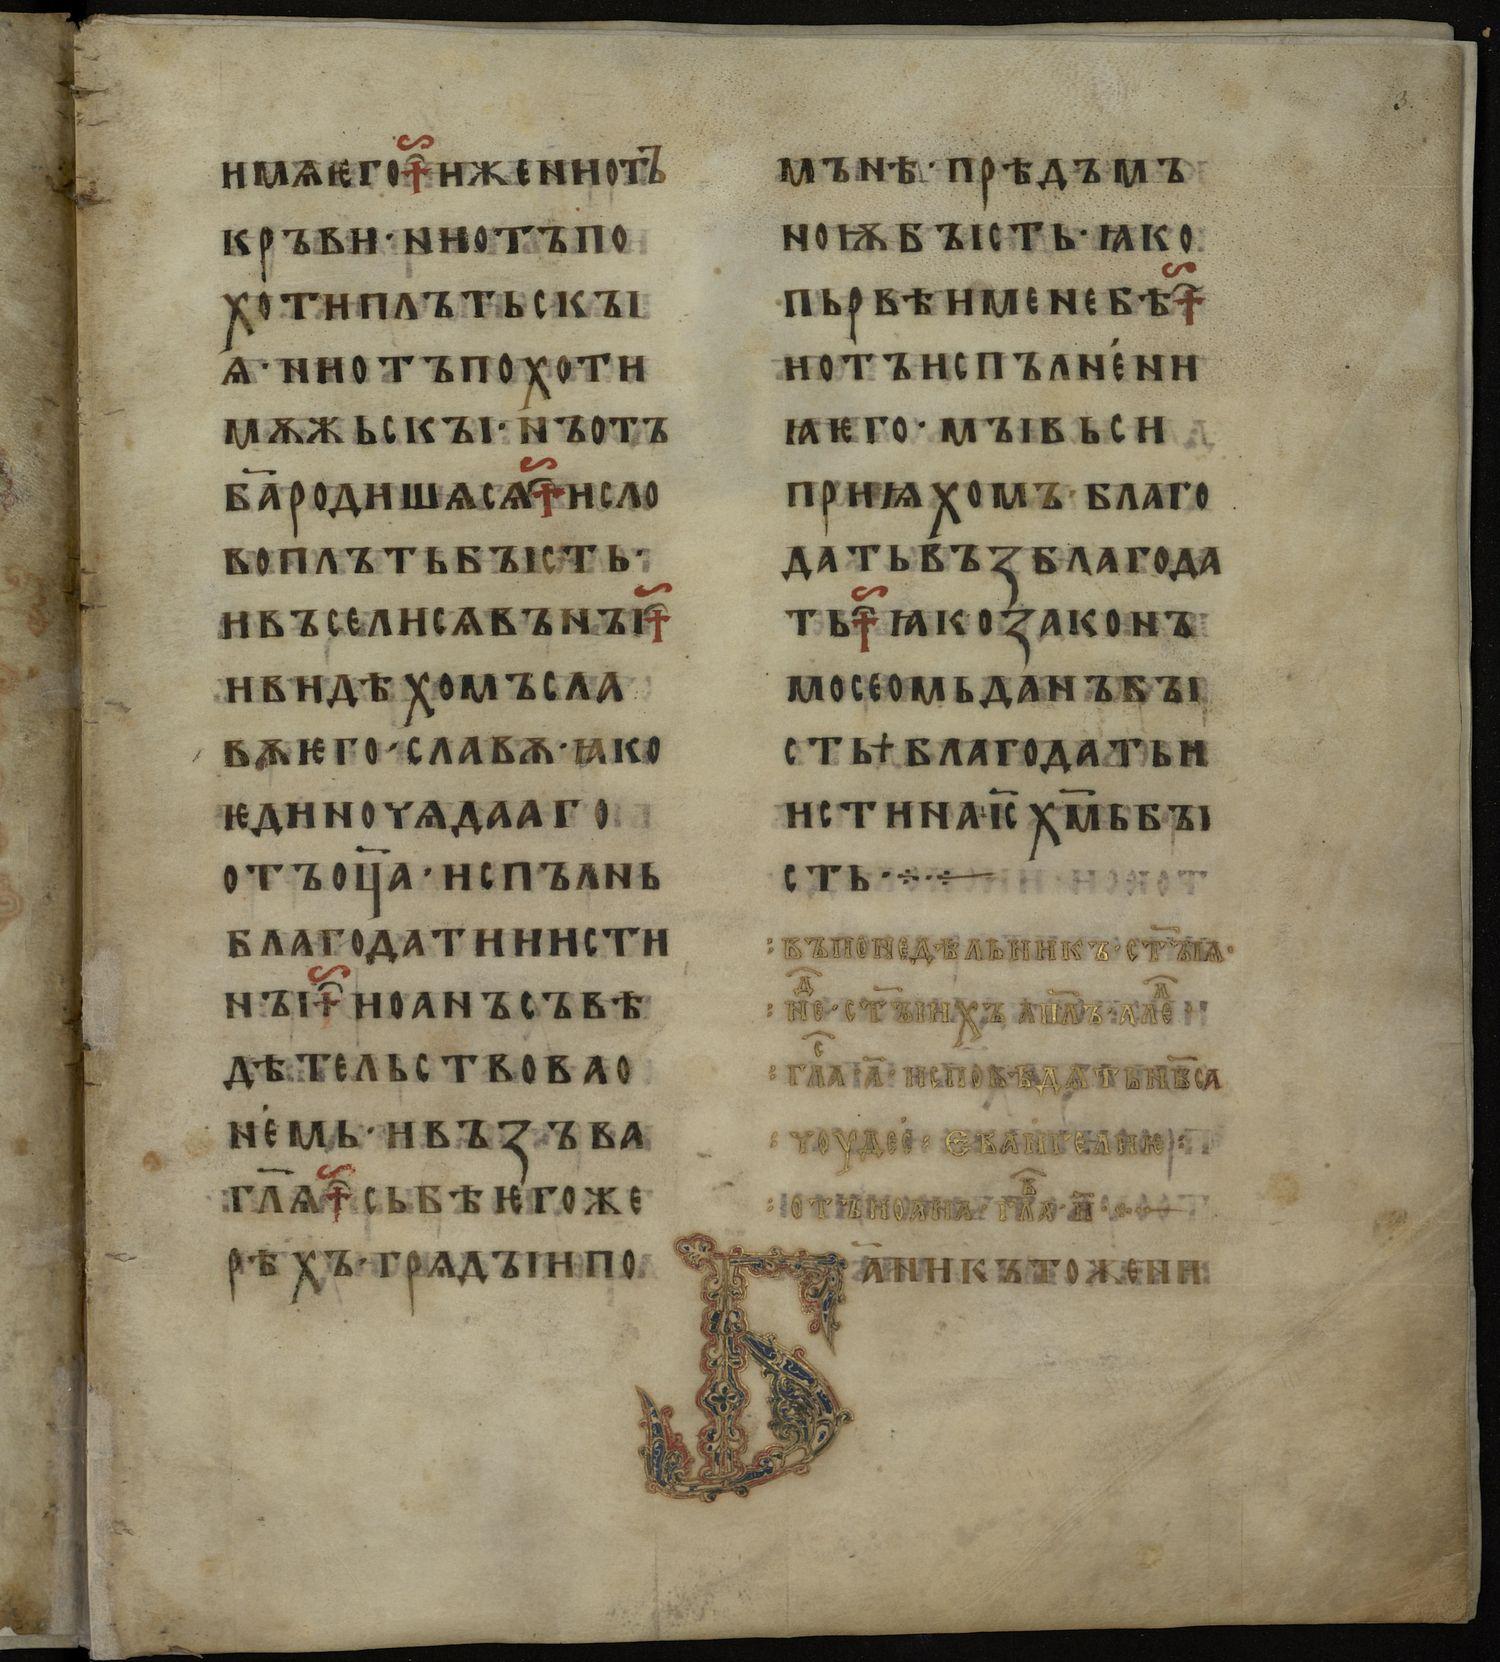 имѧѥго иженнотъ
кръви·ннотъпо
хотиплътьскꙑ
ѧ·ннотъпохоти
мѫжьскꙑ·нъотъ
ба҃родишѧсѧ исло
воплътьбꙑсть·
ивъселисѧвънꙑ
ивидѣхомъсла
вѫѥго·славѫ·ꙗко
ѥдиноѹѧдааго
отъоц҃а·испълнь
благодатииисти
нꙑ иоанъсъвѣ
дѣтельствовао
немь·ивъзъва
гл҃ѧ сьбѣѥгоже
рѣхъ·грѧдꙑипо
мънѣ·прѣдъмъ
ноѭбꙑсть·ꙗко
пьрвѣименебѣ
иотъиспълнени
ꙗѥго·мꙑвьси
приѩхомъ·благо
датьвъзблагода
ть ꙗкозаконъ
мосеомьданъбꙑ
сть благодатьи
истинаіс҃хм҃ьбꙑ
сть·
въпонедѣльникъ·ст҃ꙑꙗ·
нⷣе·ст҃ꙑихъап҃лъ·алеⷧ
глⷭа·а҃·исповѣдѧтьнб҃са
чоудес·евангелиѥ
отъиоана·глⷡа·н҃·
а҃никътоженн
3.